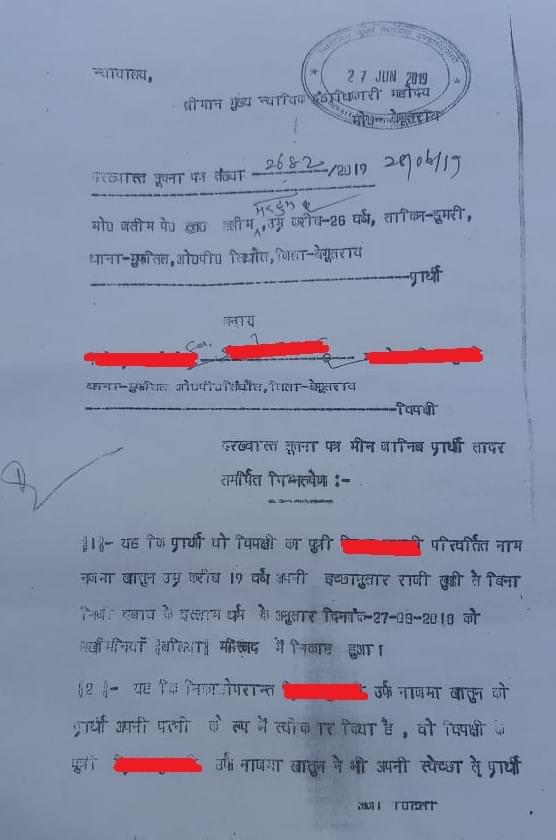 न्यायालय,
27 JUN 2019
श्रीमान मुख्य न्यायिक दंडाधिकारी महोदय
बेगूसराय
दरख्वास्त सूचना पत्र संख्या 2682/2019 28/06/19
मो0 जलीम पे0 सलीम, उम्र करीब-26 वर्ष, साकिन-डुमरी,
थाना-मुफसिल, ओ0पी0 सिंघौल, जिला-बेगूसराय
प्रार्थी
बनाम
थाना-मुफसिल ओ0पी0सिंघौल, जिला-बेगूसराय
विपक्षी
दरख्वास्त सूचना पत्र मीन जानिब प्रार्थी सादर
समर्पित निम्नरूपेण :-
§1§- यह कि प्रार्थी वो विपक्षी का पुत्री परिवर्तित नाम
नजमा खातुन उम्र करीब 19 वर्ष अपनी इच्छानुसार राजी खुशी से बिना
किसी दबाव के इस्लाम धर्म के अनुसार दिनांक-27-06-2018 को
मस्जिद में निकाह हुआ।
§2§- यह कि निकाहोपरान्त उर्फ नाजमा खातुन को
प्रार्थी अपनी पत्नी के रूप में स्वीकार किया है, वो विपक्षी के
पुत्री उर्फ नाजमा खातुन ने भी अपनी स्वेच्छा से प्रार्थी